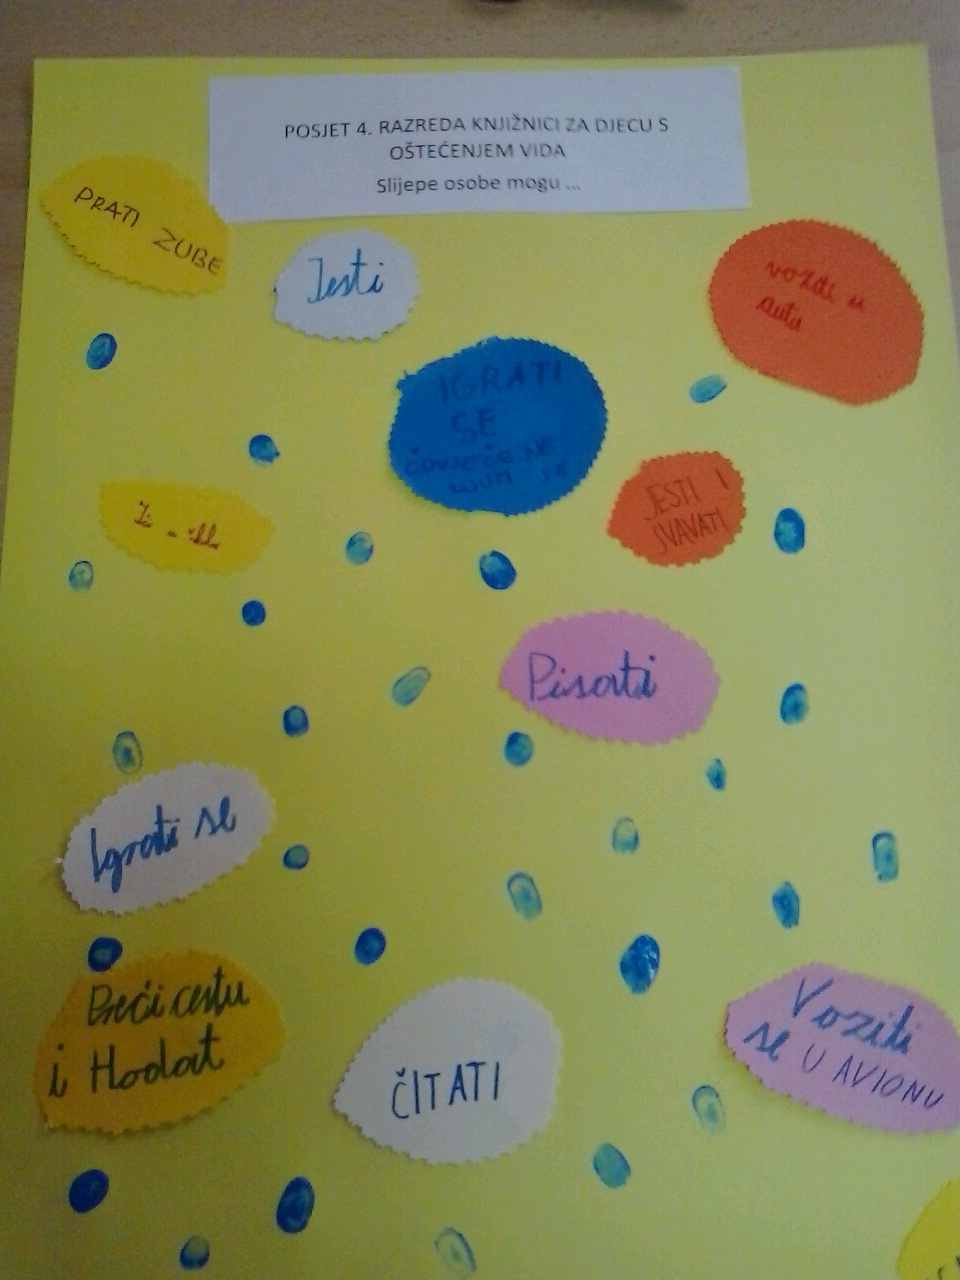 POSJET 4. RAZREDA KNJIŽNICI ZA DJECU S
OŠTEĆENJEM VIDA
Slijepe osobe mogu ...
PRATI ZUBE
Jesti
voziti u
autu
IGRATI
SE
ČOVJEČE NE
LJUTI SE
JESTI I
SVAVATI
Pisati
Igrati se
Preći cestu
i Hodat
ČITATI
Voziti
se U AVIONU